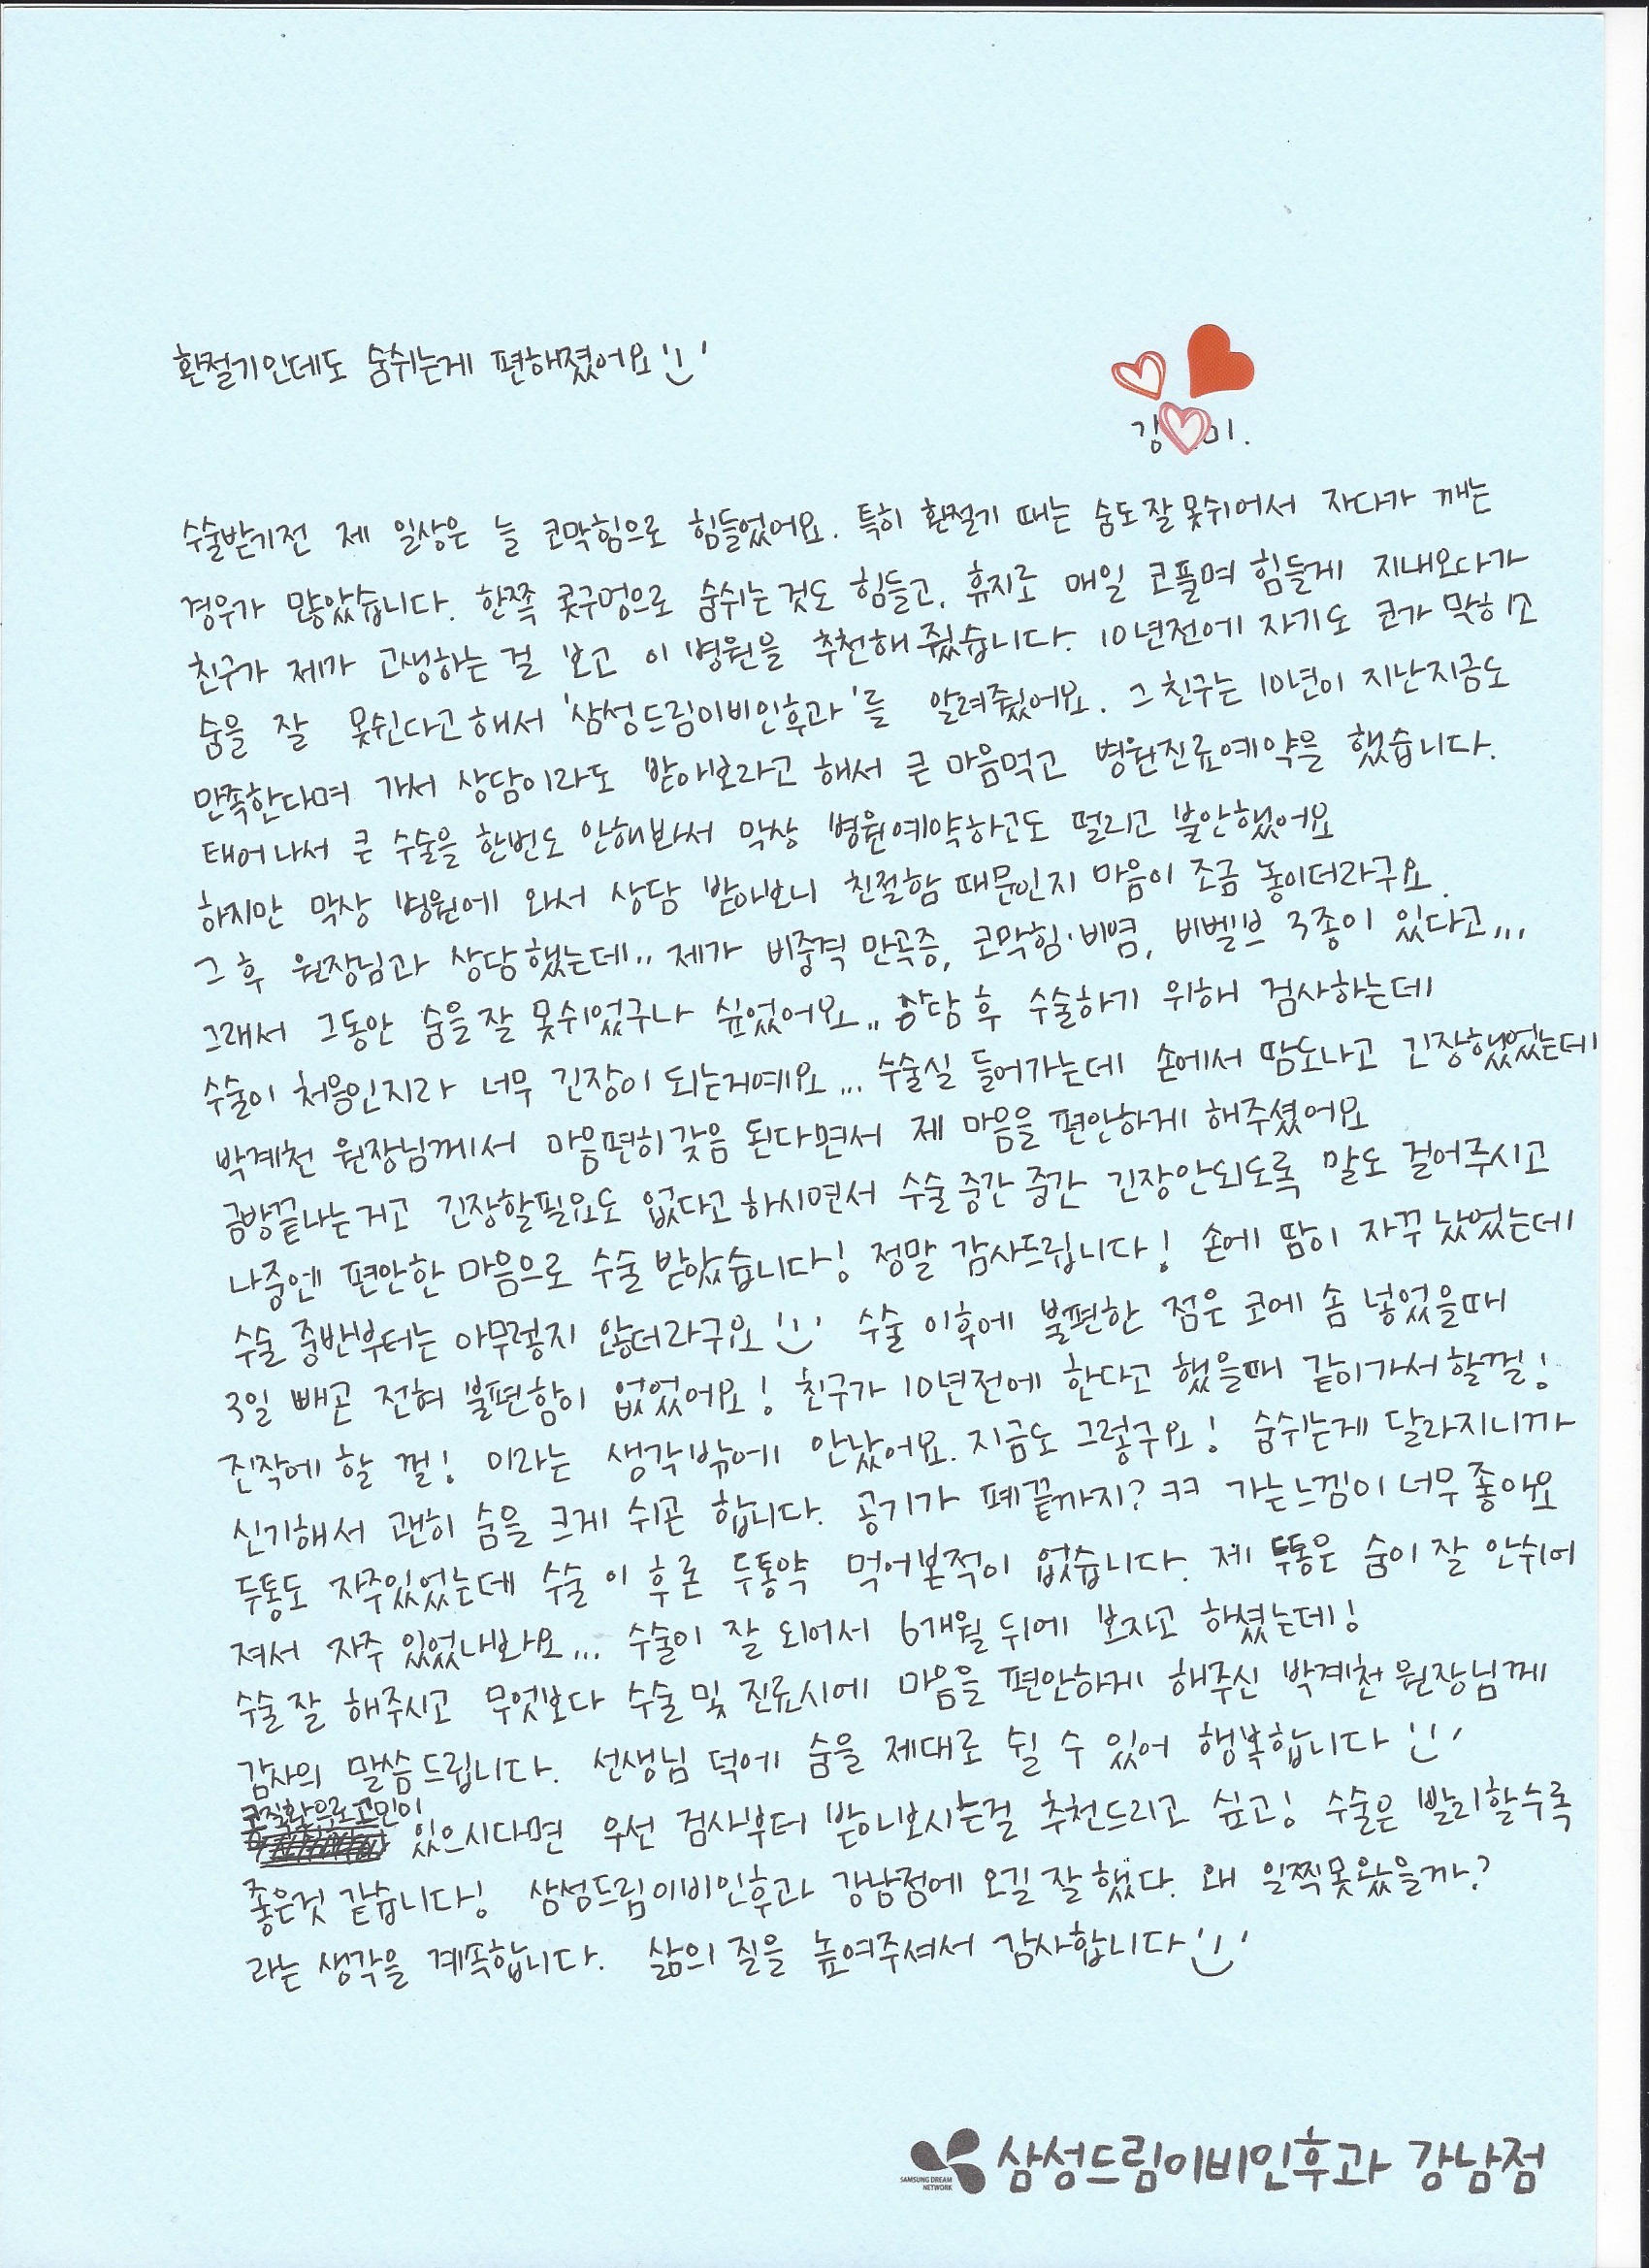 환절기인데도 숨쉬는게 편해졌어요
강 미.
수술받기전 제 일상은 늘 코막힘으로 힘들었어요. 특히 환절기 때는 숨도잘못쉬어서 자다가 깨는
경우가 많았습니다. 한쪽 콧구멍으로 숨쉬는것도 힘들고, 휴지로 매일 코풀며 힘들게 지내오다가
친구가 제가 고생하는 걸 보고 이 병원을 추천해줬습니다. 10년전에 자기도 코가 막히고
숨을 잘 못쉰다고해서 '삼성드림이비인후과'를 알려줬어요. 그친구는 10년이 지난지금도
만족한다며 가서 상담이라도 받아보라고 해서 큰 마음먹고 병원진료예약을 했습니다.
태어나서 큰 수술을 한번도 안해봐서 막상 병원예약하고도 떨리고 불안했어요
하지만 막상 병원에 와서 상담 받아보니 친절함 때문인지 마음이 조금 놓이더라구요.
그 후 원장님과 상담했는데.. 제가 비중격 만곡증, 코막힘·비염, 비벨브 3종이 있다고...
그래서 그동안 숨을잘못쉬었구나 싶었어요.. 상담 후 수술하기 위해 검사하는데
수술이 처음인지라 너무 긴장이 되는거예요... 수술실 들어가는데 손에서 땀도나고 긴장했었는데
박계천 원장님께서 마음편히갖음 된다면서 제 마음을 편안하게 해주셨어요
금방끝나는거고 긴장할필요도 없다고하시면서 수술중간중간 긴장안되도록 말도 걸어주시고
나중엔 편안한 마음으로 수술받았습니다! 정말 감사드립니다! 손에 땀이 자꾸났었는데
수술 중반부터는 아무렇지 않더라구요 수술 이후에 불편한 점은 코에 솜 넣었을때
3일 빼곤 전혀 불편함이 없었어요! 친구가 10년전에 한다고 했을때 같이가서할껄!
진작에 할 껄! 이라는 생각밖에 안났어요. 지금도 그렇구요! 숨쉬는게 달라지니까
신기해서 괜히 숨을 크게 쉬곤 합니다. 공기가 폐끝까지? ㅋㅋ 가는느낌이 너무좋아요
두통도 자주있었는데 수술 이 후론 두통약 먹어본적이 없습니다. 제 두통은 숨이 잘 안쉬어
져서 자주 있었나봐요... 수술이 잘 되어서 6개월 뒤에 보자고 하셨는데!
수술잘 해주시고 무엇보다 수술및 진료시에 마음을 편안하게 해주신 박계천원장님께
감사의 말씀드립니다. 선생님 덕에 숨을 제대로 쉴 수 있어 행복합니다
고민이 있으시다면 우선 검사부터 받아보시는걸 추천드리고 싶고! 수술은 빨리할수록
좋은것 같습니다! 삼성드림이비인후과 강남점에 오길잘했다. 왜 일찍못왔을까?
라는 생각을 계속합니다. 삶의 질을 높여주셔서 감사합니다
SAMSUNG DREAM
NETWORK
삼성드림이비인후과 강남점